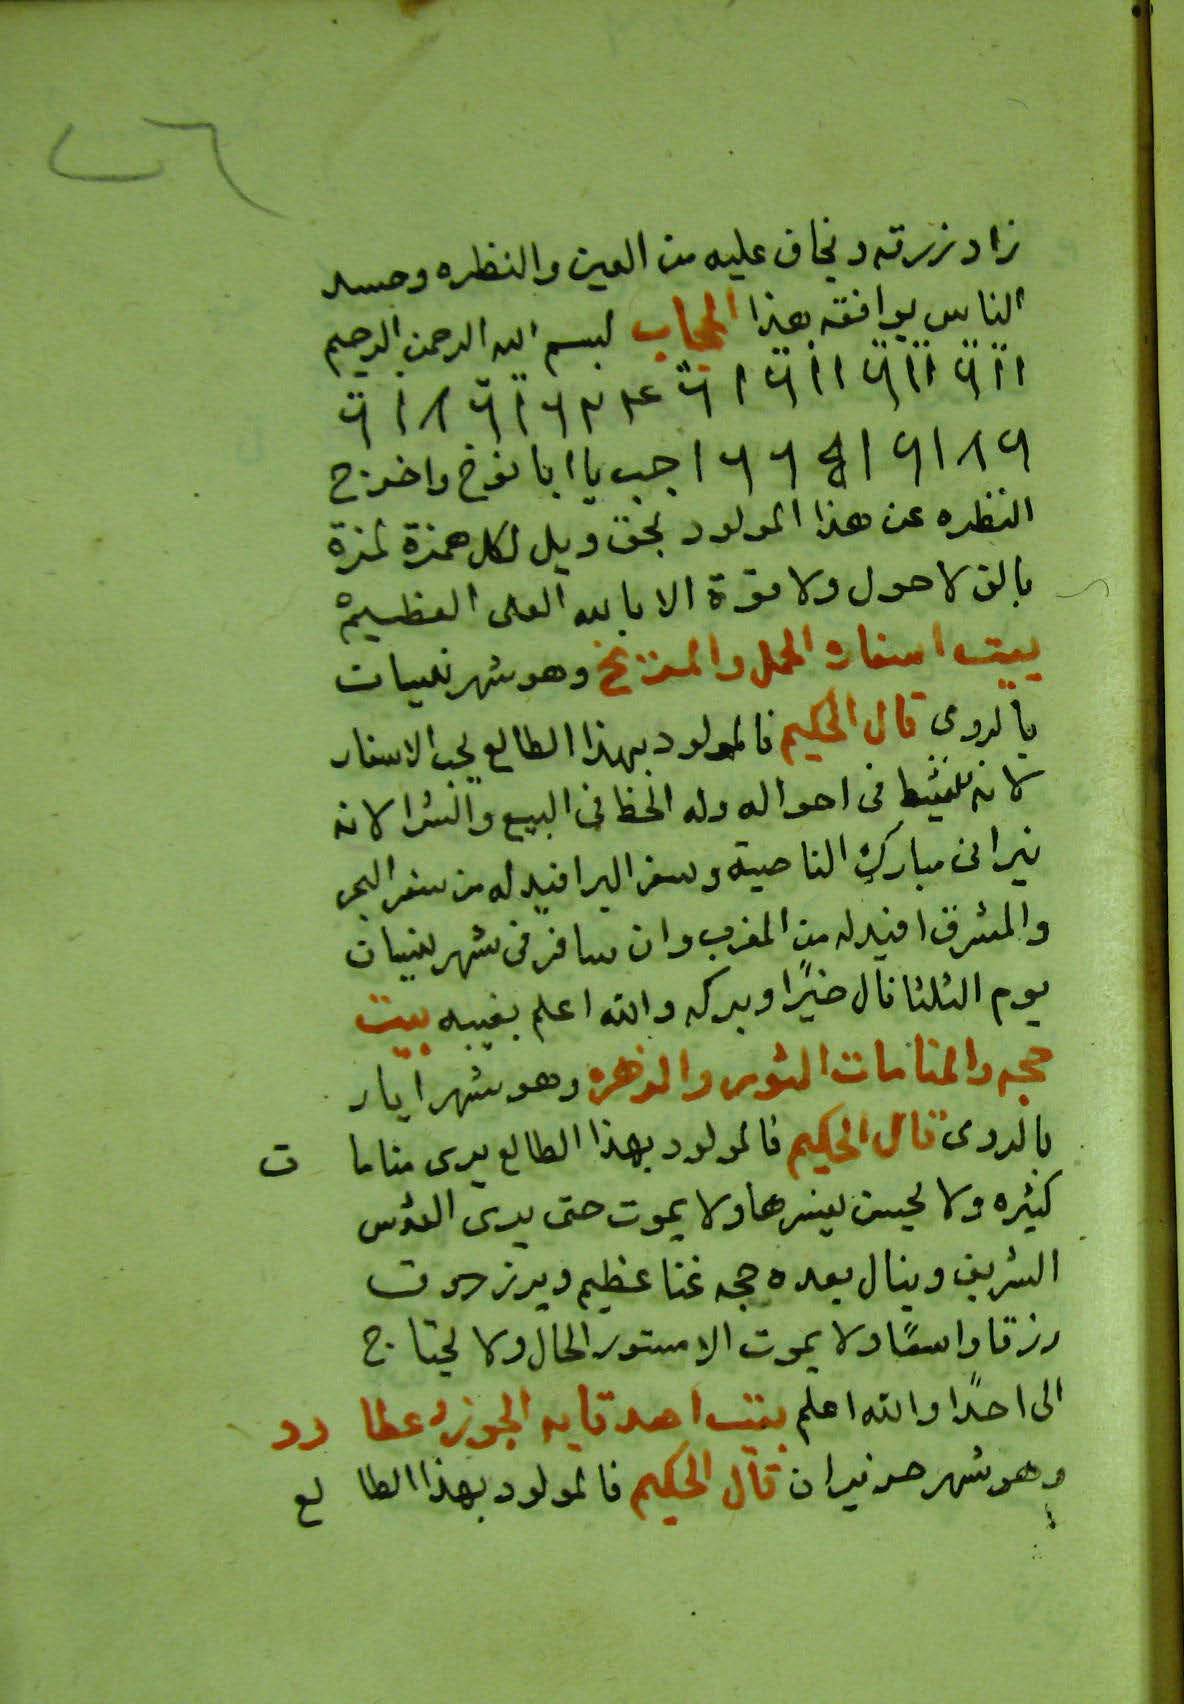 ٢٦
زاد زرقه ويخاف عليه من العين والنظره وحسد
الناس يوافقه هذا الحجاب لبسم الله الرحمن الرحيم
اجب يا ابا نوخ واخرج
النظره عن هذا المولود بحق ويل لكل همزة لمزة
بالف لا حول ولا قوة الا بالله العلى العظيم
بيت اسفاره الحمل والمريخ وهو شهر نيسان
بالرومى قال الحكيم فالمولود بهذا الطالع يحب الاسفار
لانه فى احواله وله الحظ فى البيع والشرا لانه
نيرانى مبارك الناصية وسفر البر افيد له من سفر البحر
والمشرق افيد له من المغرب وان سافر فى شهر نيسان
يوم الثلثا نال خيرًا وبركه والله اعلم بغيبه بيت
حجه والمنامات الثور والزهره وهو شهر ايار
بالرومى قال الحكيم فالمولود بهذا الطالع يرى مناما ت
كثيره ولا يحسن يفسرها ولا يموت حتى يرى القدس
الشريف وينال بعده حجه غنا عظيم ويرزق
رزقا واسعًا ولا يموت الا مستور الحال ولا يحتاج
الى احدًا والله اعلم بيت اصدقايه الجوزه عطا رد
وهو شهر حزيران قال الحكيم فالمولود بهذا الطا لع